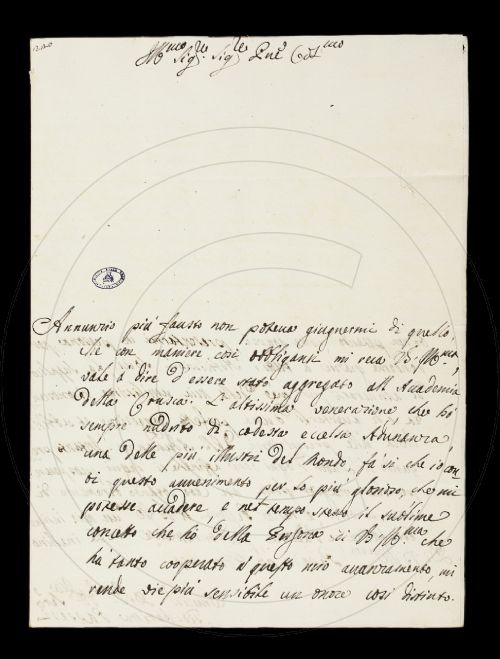 Ill.mo Sig.re Sig.re P.ne Col.mo
Annunzio più fausto non poteva giugnermi di quello,
che con maniere così obbliganti mi reca V. S. Ill.ma,
vale à dire d'essere stato aggregato all'Accademia
della Crusca. L'altissima venerazione, che hò
sempre nudrito di codesta eccelsa Adunanza,
una delle più illustri del Mondo, fà sì che io con-
ti questo avvenimento per lo più glorioso, che mi
potesse accadere, e nel tempo stesso il sublime
concetto che hò della Persona di V. S. Ill.ma che
hà tanto cooperato à questo mio avanzamento, mi
rende vie più sensibile un onore così distinto.